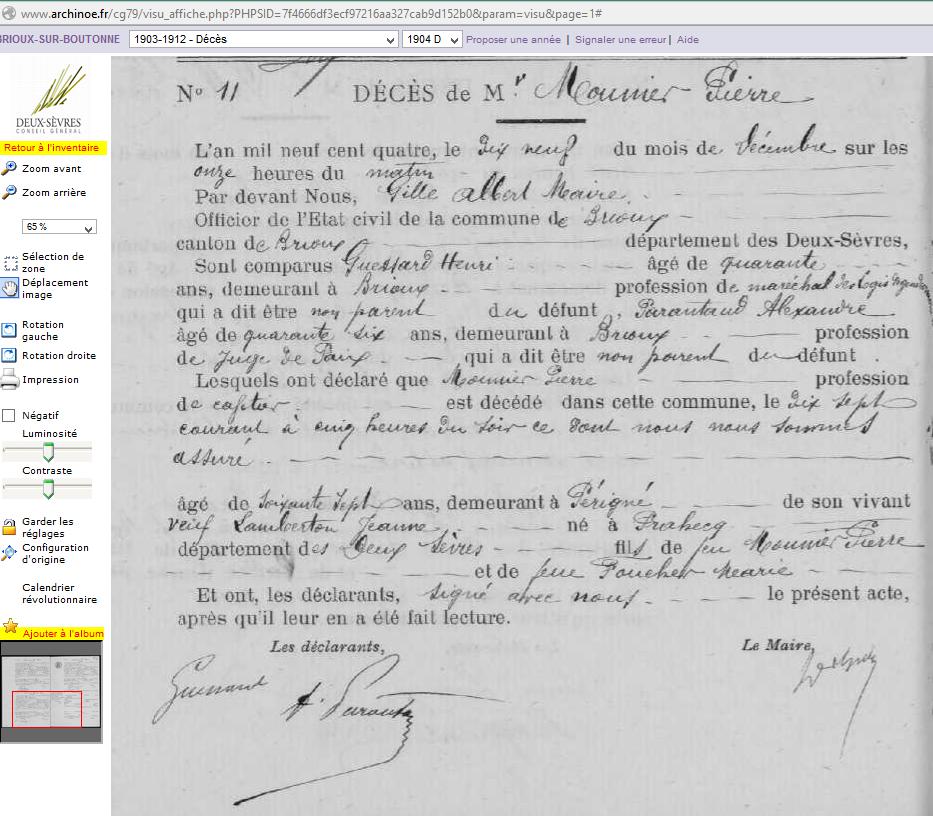 www.archinoe.fr/cg79/visu_affiche.php?PHPSID=7f4666df3ecf97216aa327cab9d152b0&param=visu&page=1#
BRIOUX-SUR-BOUTONNE 1903-1912 - Décès 1904 D Proposer une année | Signaler une erreur | Aide
DEUX-SÈVRES
CONSEIL GÉNÉRAL
Retour à l'inventaire
Zoom avant
Zoom arrière
65 %
Sélection de
zone
Déplacement
image
Rotation
gauche
Rotation droite
Impression
Négatif
Luminosité
Contraste
Garder les
réglages
Configuration
d'origine
Calendrier
révolutionnaire
Ajouter à l'album
No 11 DÉCÈS de Mr Mounier Pierre
L'an mil neuf cent quatre, le dix neuf du mois de décembre sur les
onze heures du matin
Par devant Nous, Gille Albert Maire
Officier de l'Etat civil de la commune de Brioux
canton de Brioux département des Deux-Sèvres,
Sont comparus Guessard Henri âgé de quarante
ans, demeurant à Brioux profession de maréchal des logis
qui a dit être non parent du défunt, Parantaud Alexandre
âgé de quarante six ans, demeurant à Brioux profession
de Juge de Paix qui a dit être non parent du défunt.
Lesquels ont déclaré que Mounier Pierre profession
de est décédé dans cette commune, le dix sept
courant à cinq heures du soir ce dont nous nous sommes
assuré
âgé de soixante sept ans, demeurant à Périgné de son vivant
veuf Lamberton Jeanne né à Prahecq
département des Deux Sèvres fils de feu Mounier Pierre
et de feue Poucher Marie
Et ont, les déclarants, signé avec nous le présent acte,
après qu'il leur en a été fait lecture.
Les déclarants, Le Maire,